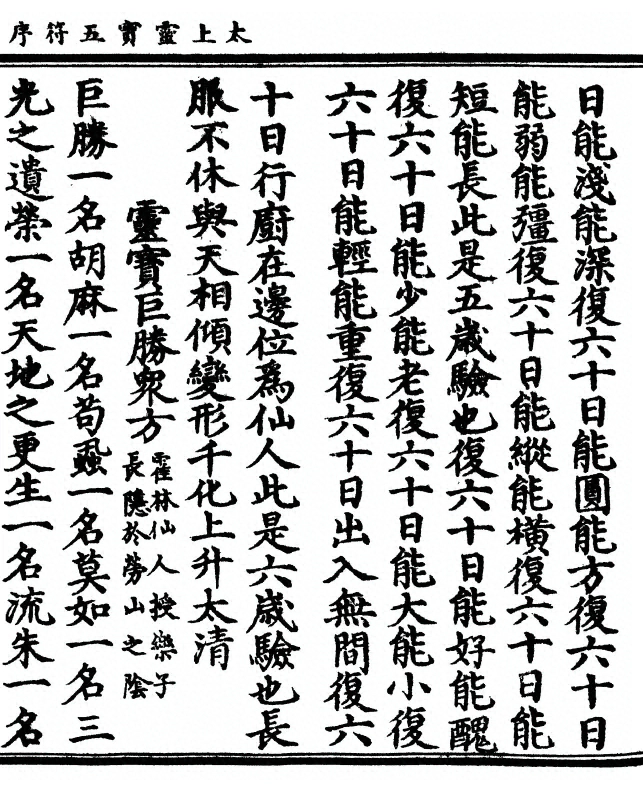 太上靈寶五符序
日能淺能深復六十日能圓能方復六十日
能弱能彊復六十日能縱能橫復六十日能
短能長此是五歲驗也復六十日能好能醜
復六十日能少能老復六十日能大能小復
六十日能輕能重復六十日出入無間復六
十日行廚在邊位爲仙人此是六歲驗也長
服不休與天相傾變形千化上升太清
靈寶巨勝眾方霍林仙人授樂子
長隱於勞山之陰
巨勝一名胡麻一名苟蝨一名莫如一名三
光之遺榮一名天地之更生一名流朱一名